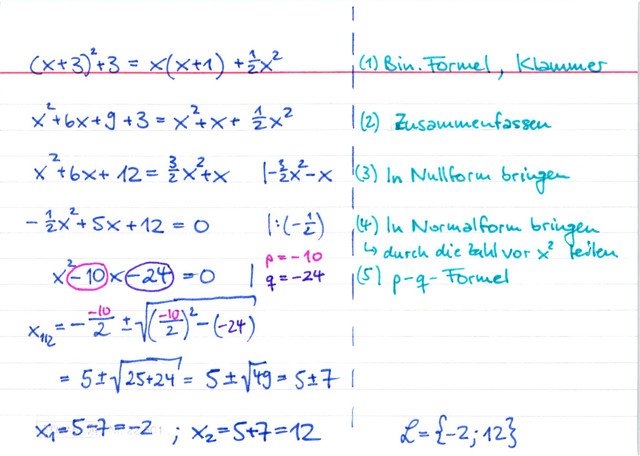 (x+3)²+3 = x(x+1) + ½x² (1) Bin. Formel, Klammer
x²+6x+9+3 = x²+x+ ½x² (2) Zusammenfassen
x²+6x+12 = 3/2x²+x |-3/2x²-x (3) In Nullform bringen
-½x²+5x+12 = 0 |:(-½) (4) In Normalform bringen
↳ durch die Zahl vor x² teilen
x²-10x-24 = 0 | p=-10 q=-24 (5) p-q-Formel
x₁/₂ = - -10/2 ± √((-10/2)²-(-24))
= 5±√25+24 = 5±√49 = 5±7
x₁=5-7=-2 ; x₂=5+7=12 L={-2;12}